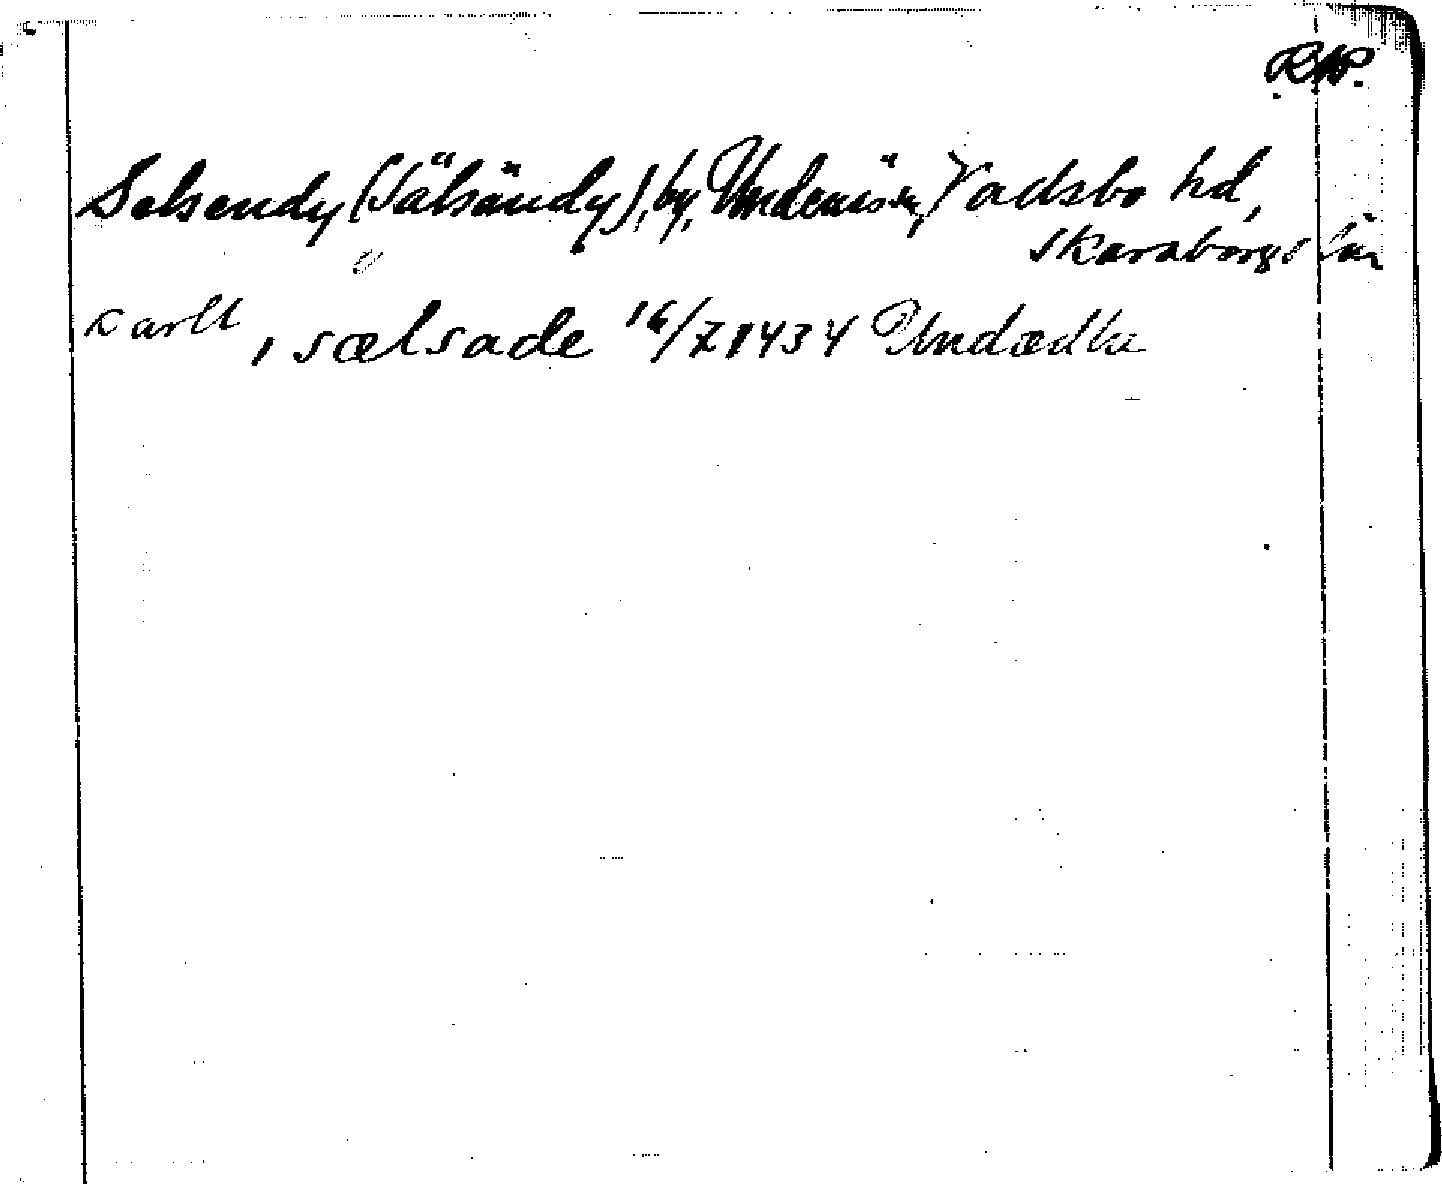 RAP.
Selsendy (Sälsändy), by, Undenäs sn, Vadsbo hd,
Skaraborgs län
Karll i sælsade 16/7 1434 Undædha